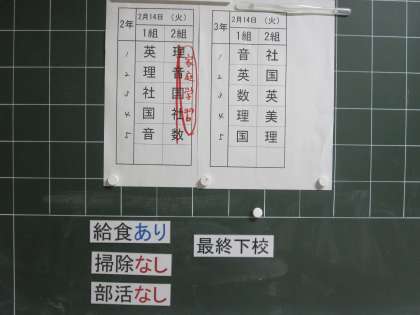 2年 2月14日 (火)
1組 2組
1 英 理
2 理 音
3 社 国
4 国 社
5 音 数
家庭学習
3年 2月14日 (火)
1組 2組
1 音 社
2 英 国
3 数 英
4 理 美
5 国 理
給食あり
掃除なし
部活なし
最終下校